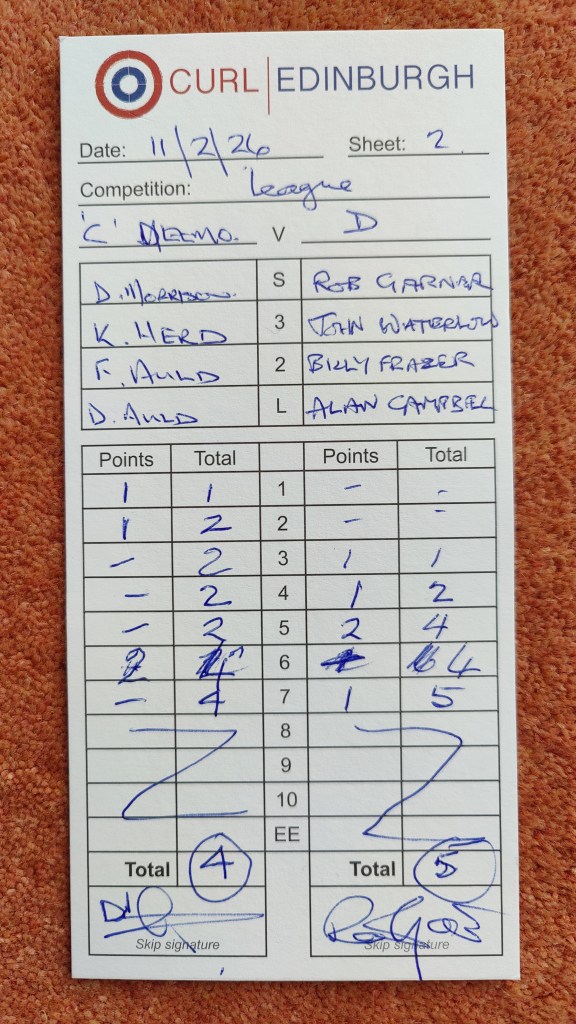 CURL EDINBURGH
Date: 11/2/26 Sheet: 2
Competition: League
'C' V D
D. MORRISON S ROB GARNER
K. HERD 3 JOHN WATERLOW
F. AULD 2 BILLY FRAZER
D. AULD L ALAN CAMPBEL
Points Total Points Total
1 1 1 - -
1 2 2 - -
- 2 3 1 1
- 2 4 1 2
- 2 5 2 4
2 4 6 4
- 4 7 1 5
8
9
10
EE
Total 4 Total 5
Skip signature Skip signature